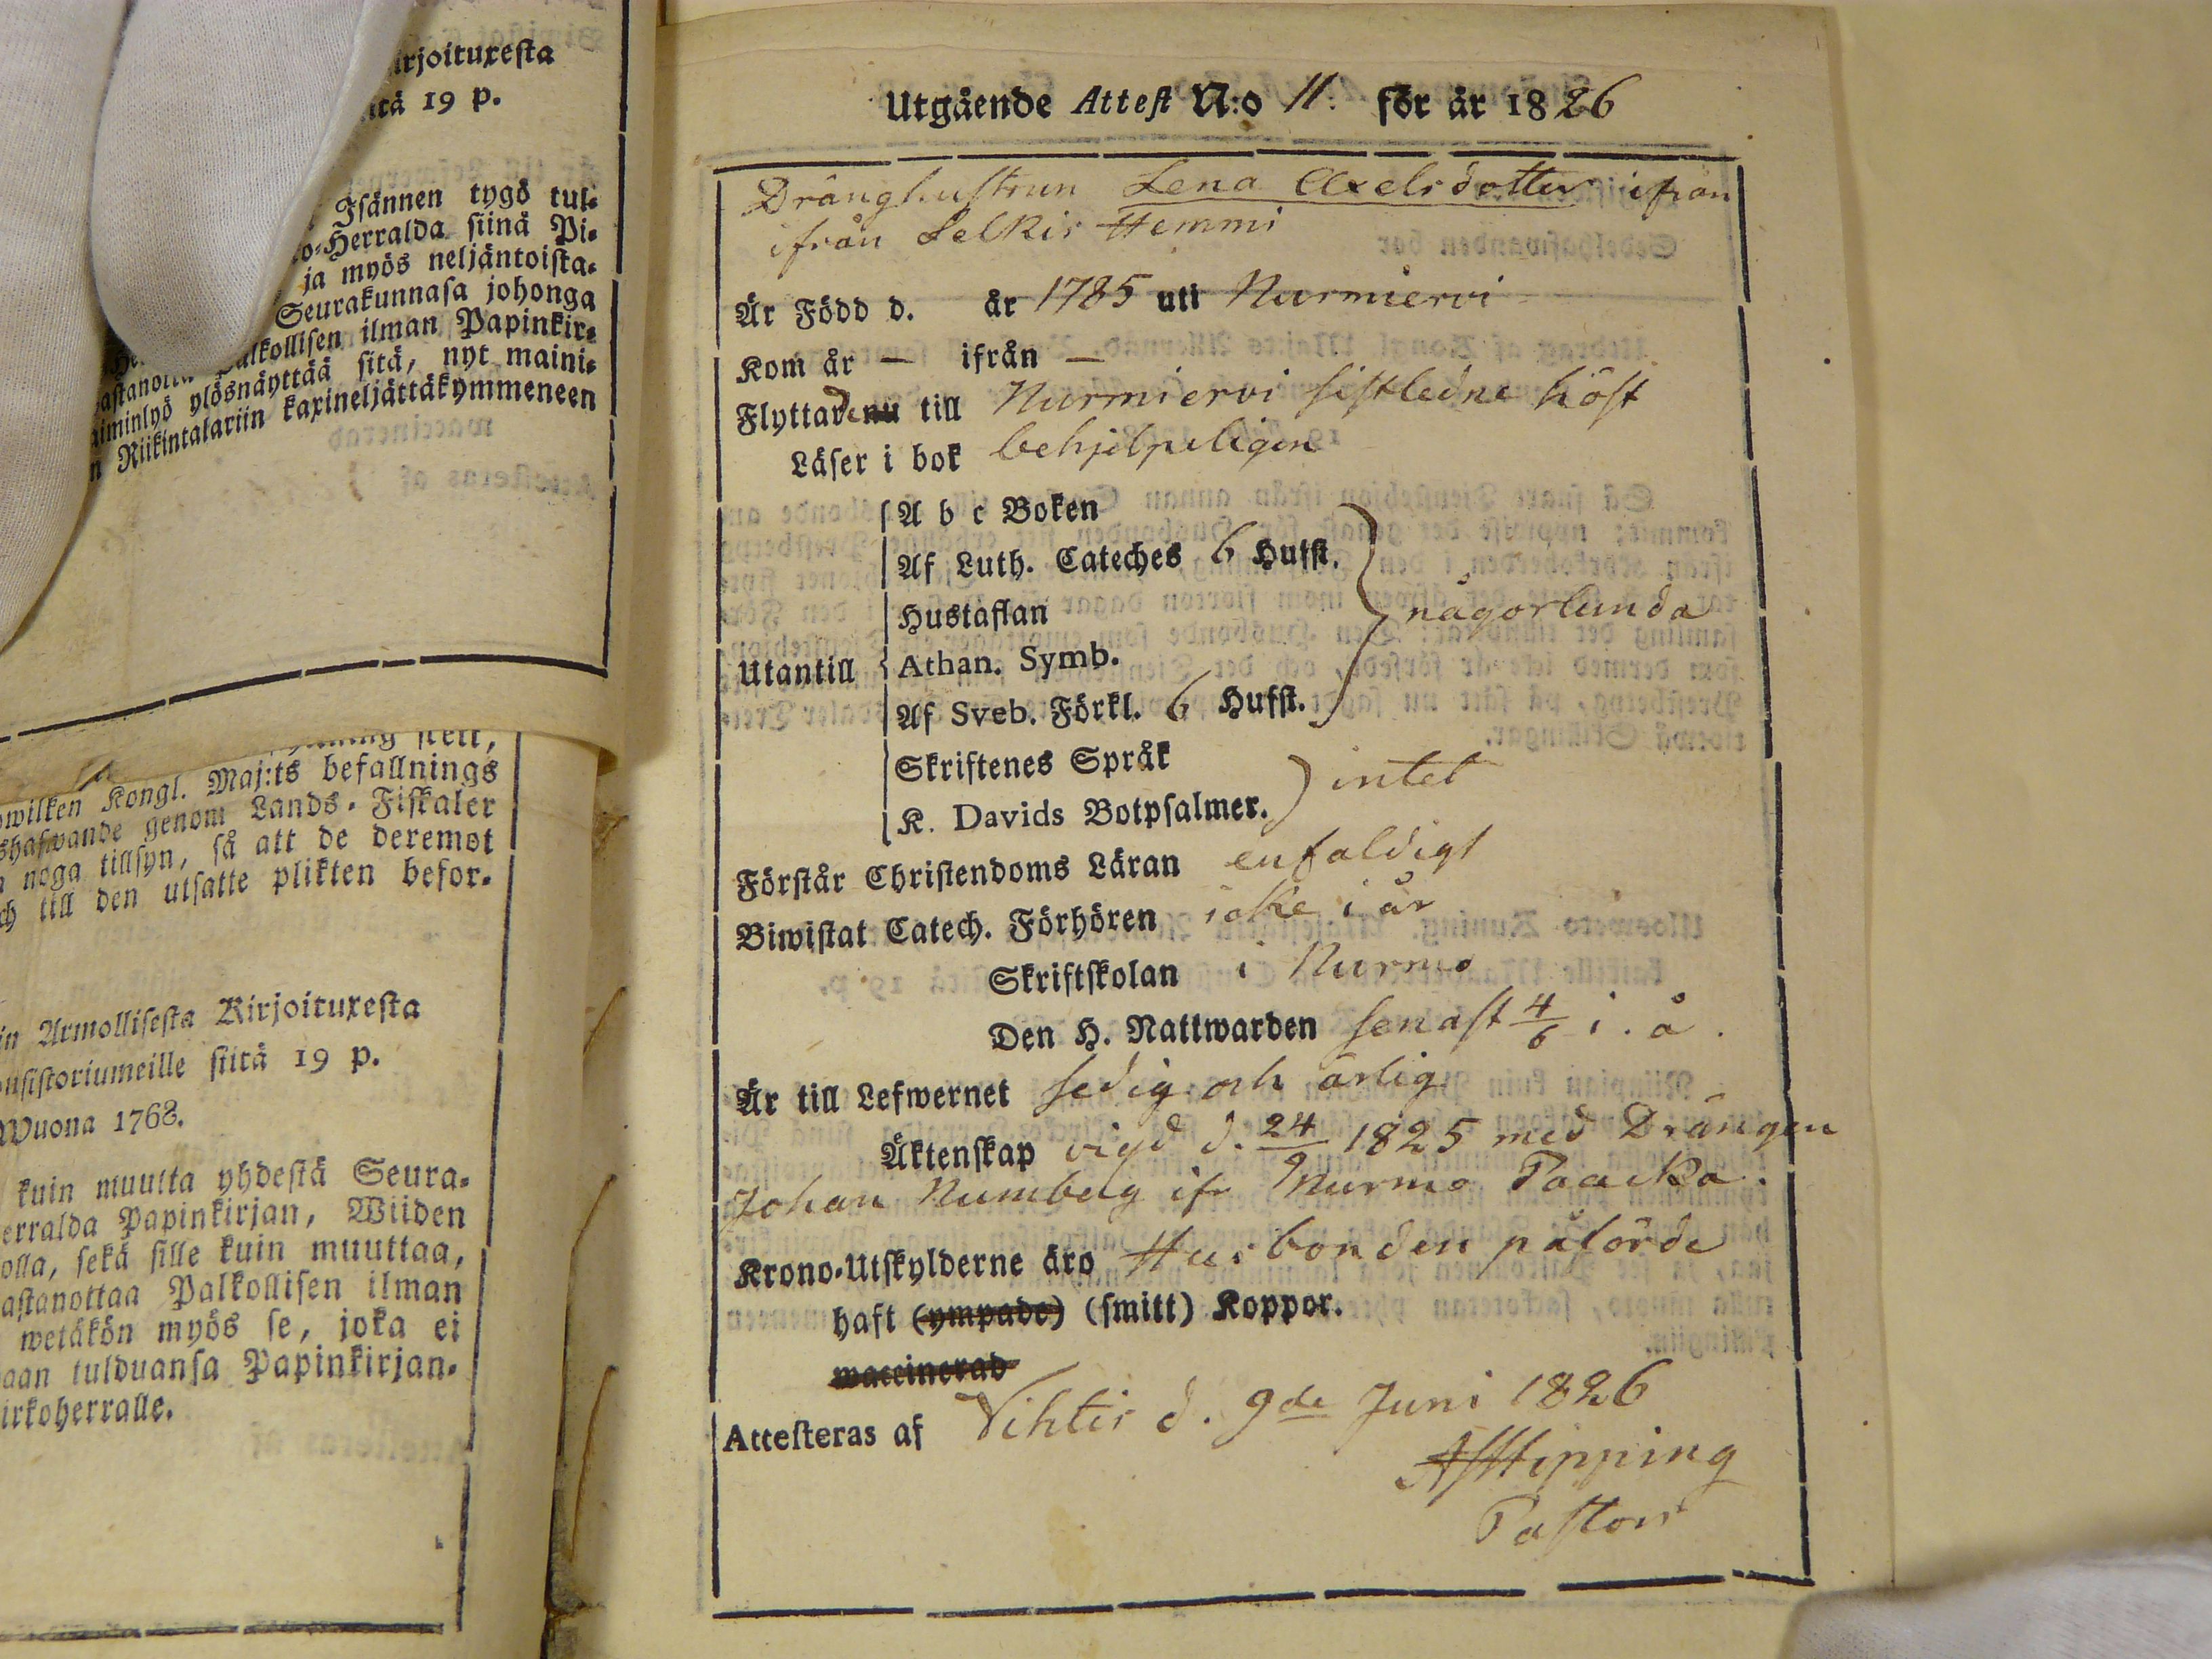 irjoituxesta
itä 19 p.
Isännen tygö tul-
o-Herralda siinä Pi-
ja myös neljäntoista-
Seurakunnasa johonga
alkollisen ilman Papinkir-
astanotta
aiminlyö ylösnäyttää sitä, nyt maini-
n Riikintalariin kaxineljättäkymmeneen
owilken Kongl. Maj:ts befallnings
shafwande genom Lands-Fiskaler
n noga tillsyn, så att de deremot
ch till den utsatte plikten befor-
in Armollisesta Kirjoituxesta
onsistoriumeille siitä 19 p.
Wuona 1768.
kuin muutta yhdestä Seura-
erralda Papinkirjan, Wiiden
olla, sekä sille kuin muuttaa,
astanottaa Palkollisen ilman
wetäkön myös se, joka ei
aan tulduansa Papinkirjan-
irkoherralle.
Utgående Attest N:o 11. för år 1826
Dränghustrun Lena Axelsdotter ifrån
ifrån Selkis Hemmi
Är Född d. år 1785 uti Nurmiervi
Kom år — ifrån —
Flyttade nu till Nurmiervi sistledne höst
Läser i bok behjelpeligen
A b c Boken
Af Luth. Cateches 6 Hufst.
Hustaflan någorlunda
Utantill Athan. Symb.
Af Sveb. Förkl. 6 Hufst.
Skriftenes Språk
K. Davids Botpsalmer. intet
Förstår Christendoms Läran enfaldigt
Biwistat Catech. Förhören icke i år
Skriftskolan i Nurmo
Den H. Nattwarden senast 4/6 i. å.
Är till Lefwernet sedig och ärlig
Äktenskap vigd d. 24/9 1825 med Drängen
Johan Numbeg ifr Nurmo Paacka.
Krono-Utskylderne äro Husbonden påförde
haft (ympade) (smitt) Koppor.
waccinerad
Attesteras af Vihtis d. 9de Juni 1826
AJHipping
Pastor